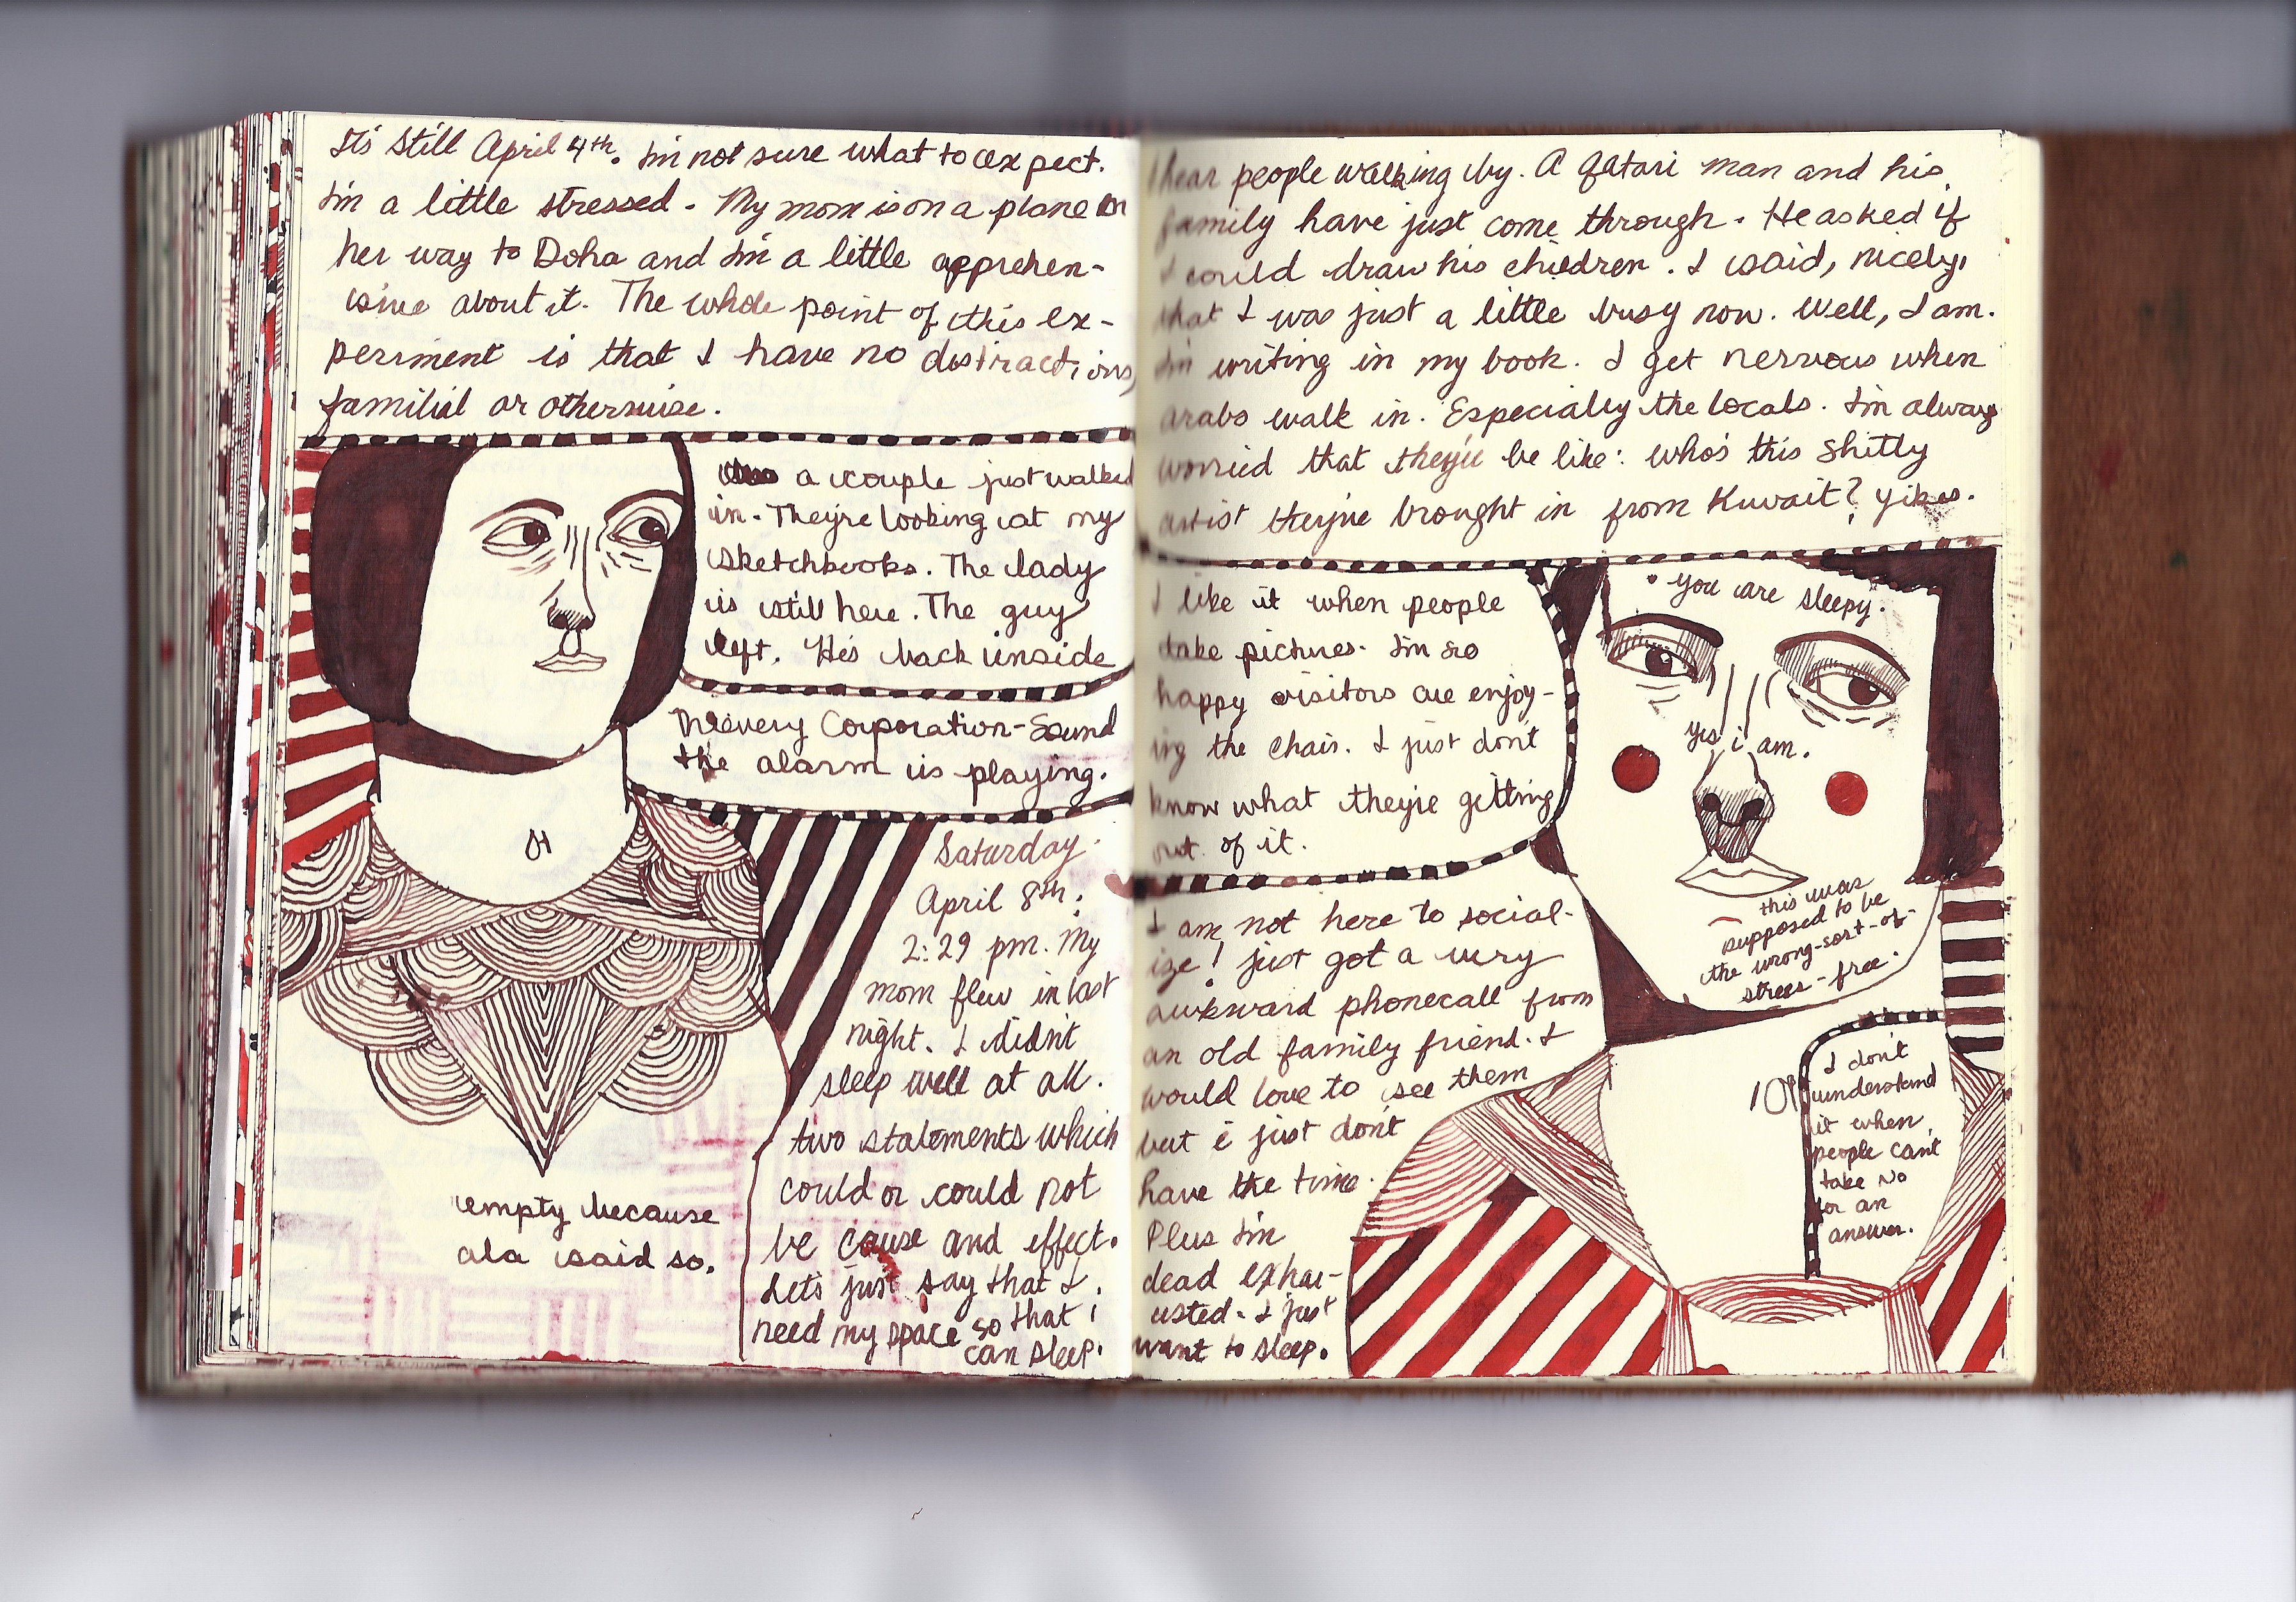 It's still April 4th. I'm not sure what to expect.
I'm a little stressed. My mom is on a plane on
her way to Doha and I'm a little apprehen-
sive about it. The whole point of this ex-
periment is that I have no distractions,
familial or otherwise.
a couple just walked
in. They're looking at my
sketchbooks. The lady
is still here. The guy
left. He's back inside
Thievery Corporation-Sound
the alarm is playing.
Saturday.
April 8th:
2:29 pm. My
mom flew in last
night. I didn't
sleep well at all.
two statements which
could or could not
be cause and effect.
Let's just say that I
need my space so that i
can sleep.
empty because
ala said so.
I hear people walking by. A Qatari man and his
family have just come through. He asked if
I could draw his children. I said, nicely,
that I was just a little busy now. Well, I am.
I'm writing in my book. I get nervous when
arabs walk in. Especially the locals. I'm always
worried that they'll be like: who's this shitty
artist they've brought in from Kuwait? Yikes.
I like it when people
take pictures. I'm so
happy visitors are enjoy-
ing the chair. I just don't
know what they're getting
out of it.
I am not here to social-
ize! just got a very
awkward phonecall from
an old family friend. I
would love to see them
but i just don't
have the time.
Plus I'm
dead exha-
usted. I just
want to sleep.
• you are sleepy.
yes i am.
this was
supposed to be
the wrong-sort-of-
stress-free.
I don't
understand
it when
people can't
take no
for an
answer.